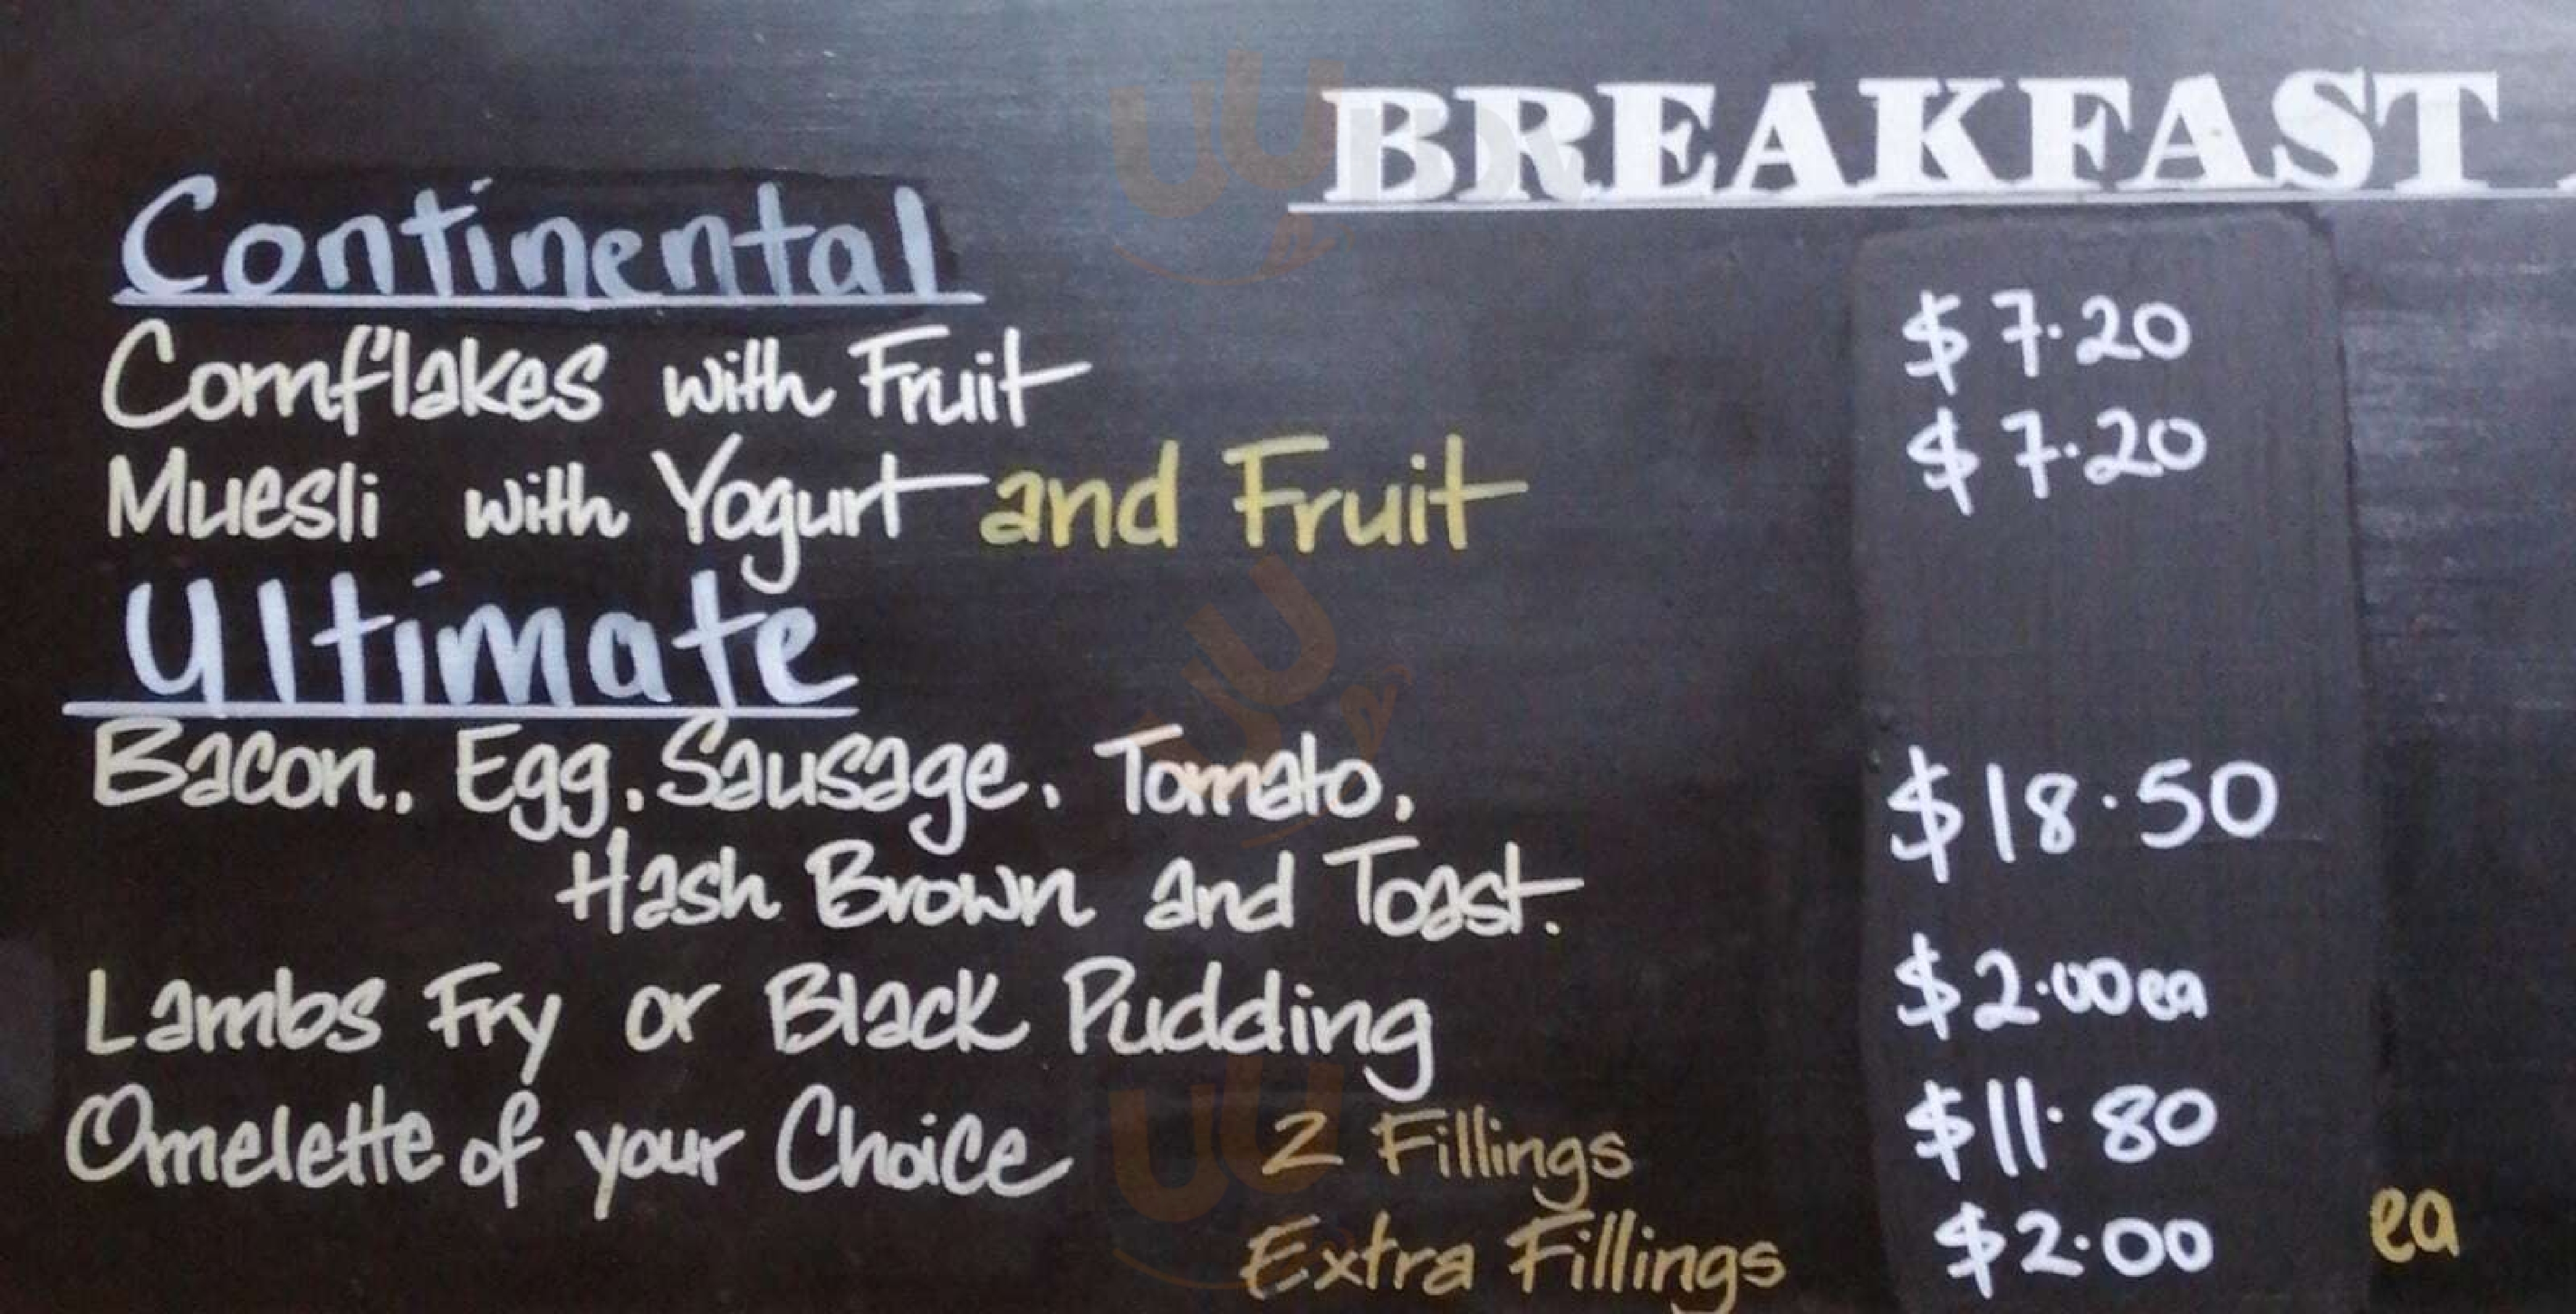 BREAKFAST
Continental
Cornflakes with Fruit $7.20
Muesli with Yogurt and Fruit $7.20
Ultimate
Bacon, Egg, Sausage, Tomato, $18.50
Hash Brown and Toast.
Lambs Fry or Black Pudding $2.00ea
Omelette of your Choice 2 Fillings $11.80
Extra Fillings $2.00 ea